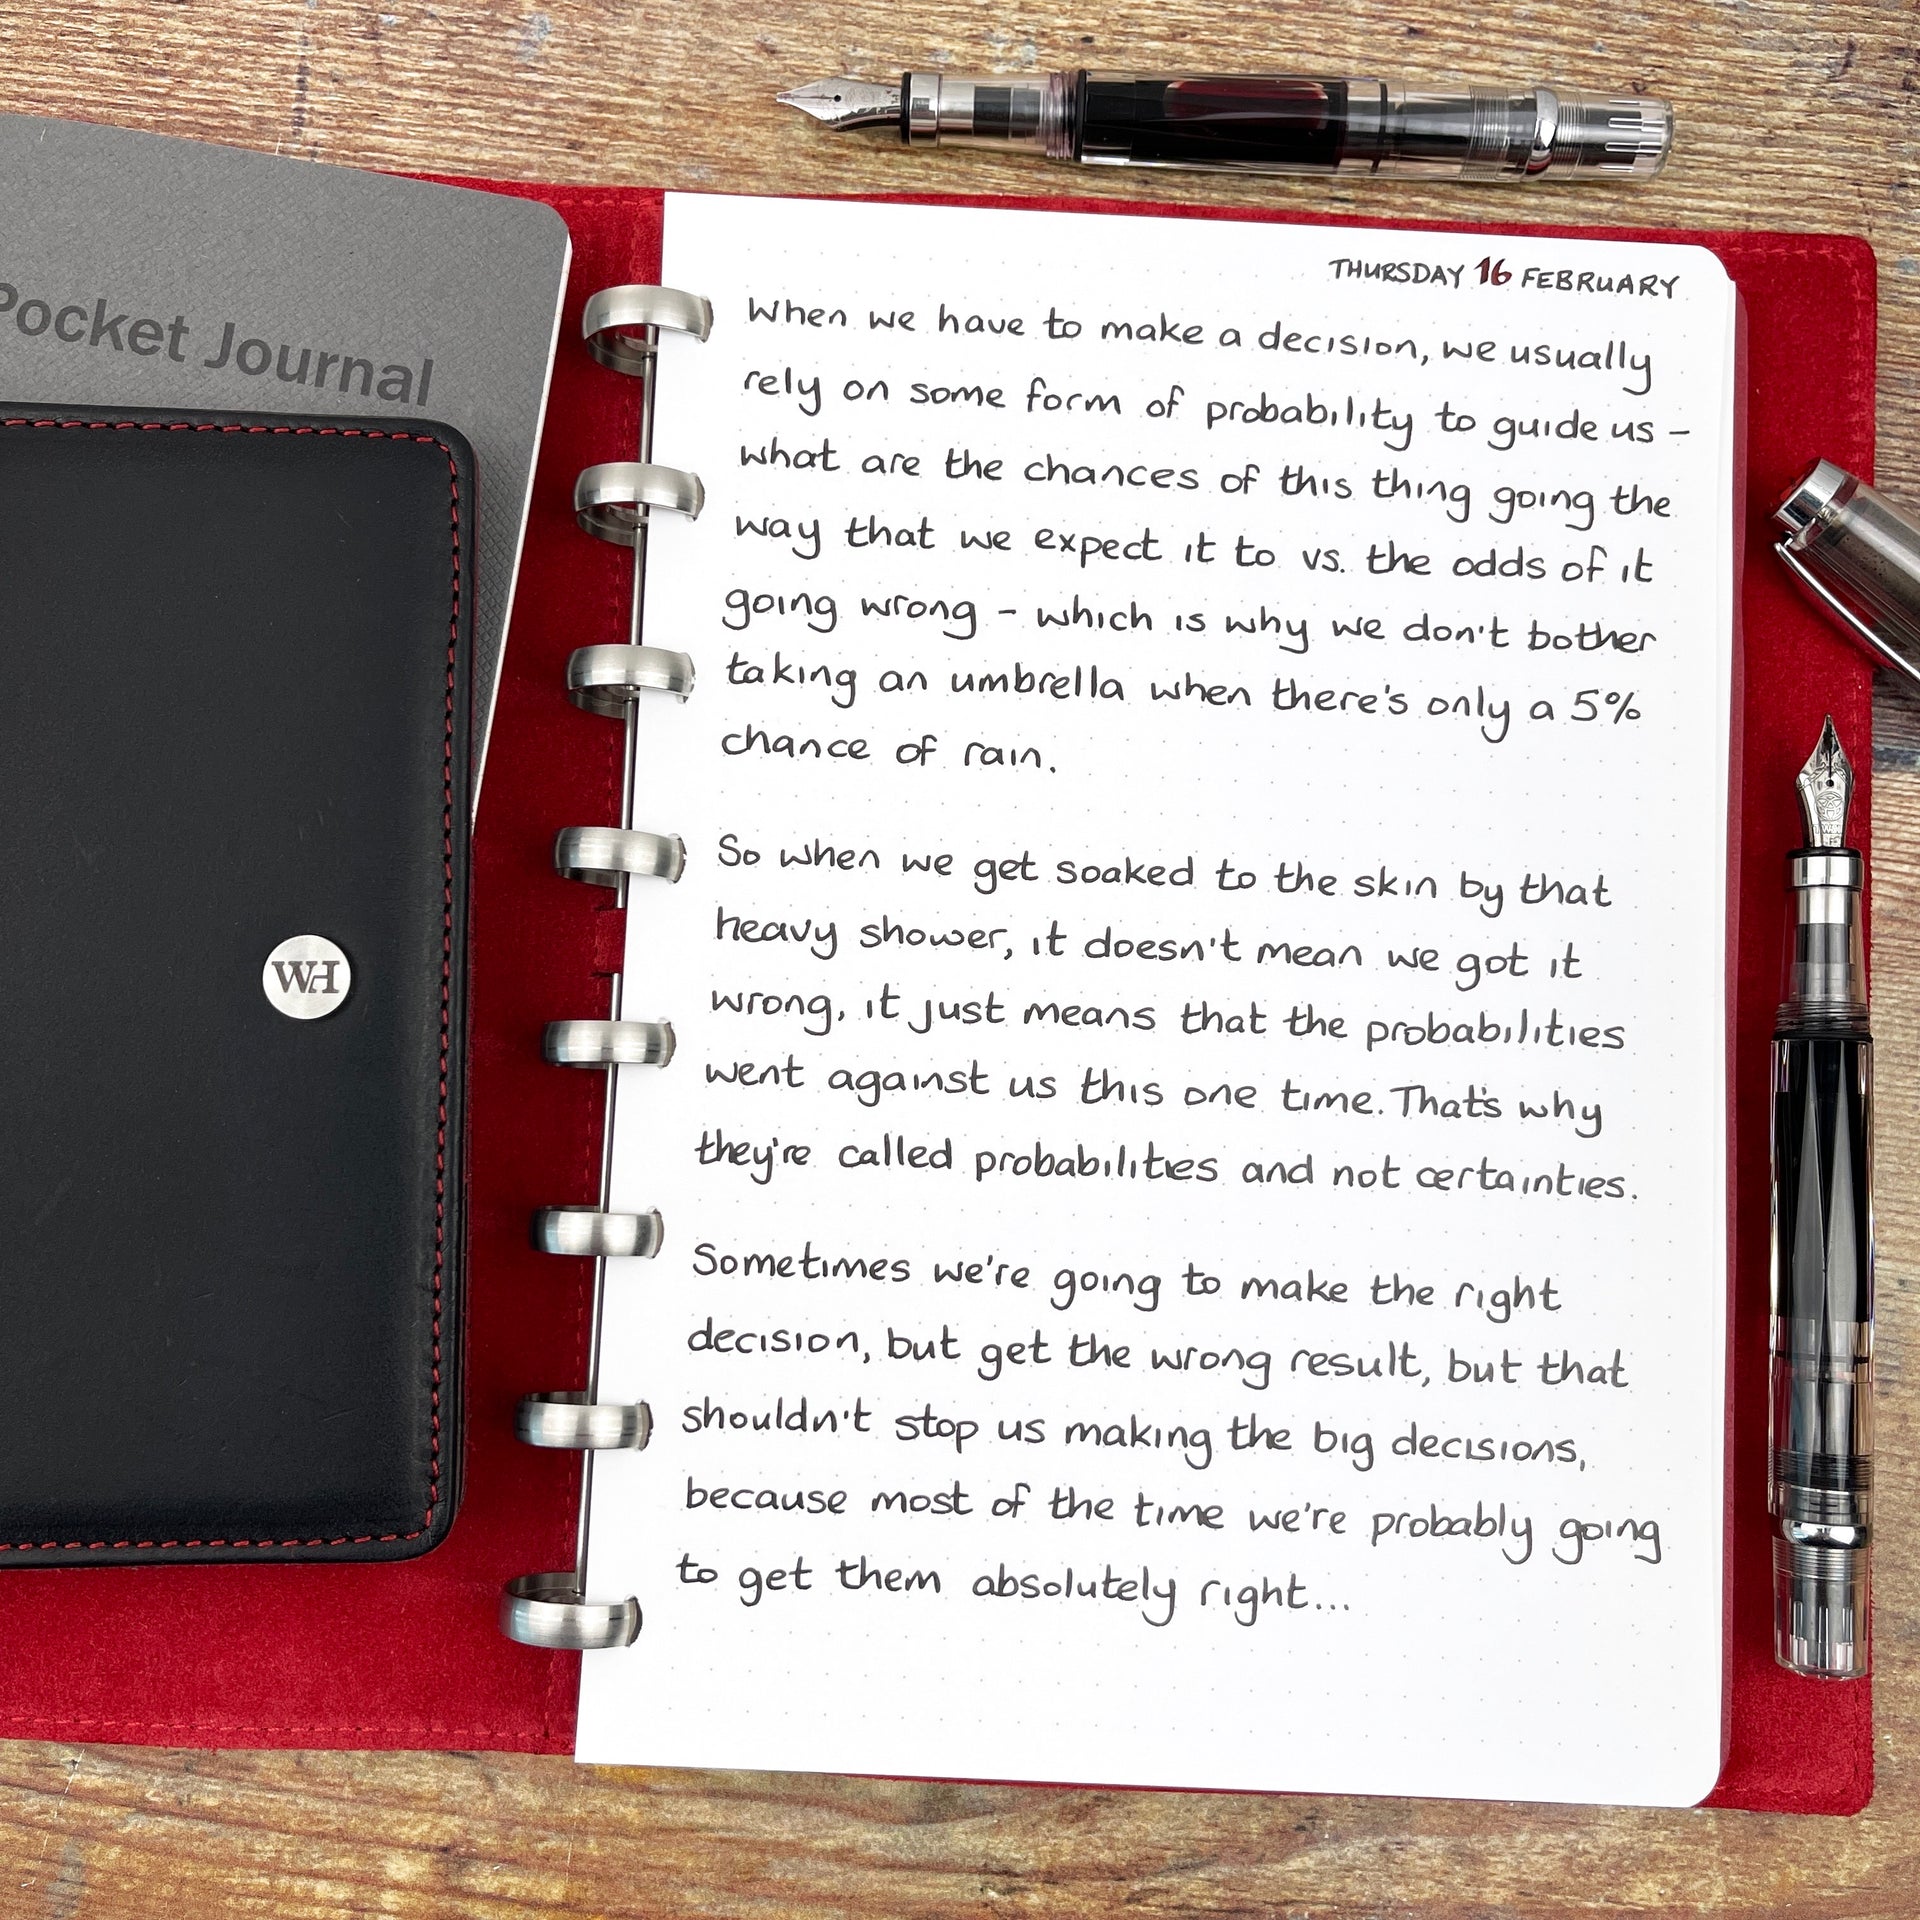 Pocket Journal
WH
THURSDAY 16 FEBRUARY
When we have to make a decision, we usually
rely on some form of probability to guide us –
what are the chances of this thing going the
way that we expect it to vs. the odds of it
going wrong – which is why we don't bother
taking an umbrella when there's only a 5%
chance of rain.
So when we get soaked to the skin by that
heavy shower, it doesn't mean we got it
wrong, it just means that the probabilities
went against us this one time. That's why
they're called probabilities and not certainties.
Sometimes we're going to make the right
decision, but get the wrong result, but that
shouldn't stop us making the big decisions,
because most of the time we're probably going
to get them absolutely right...